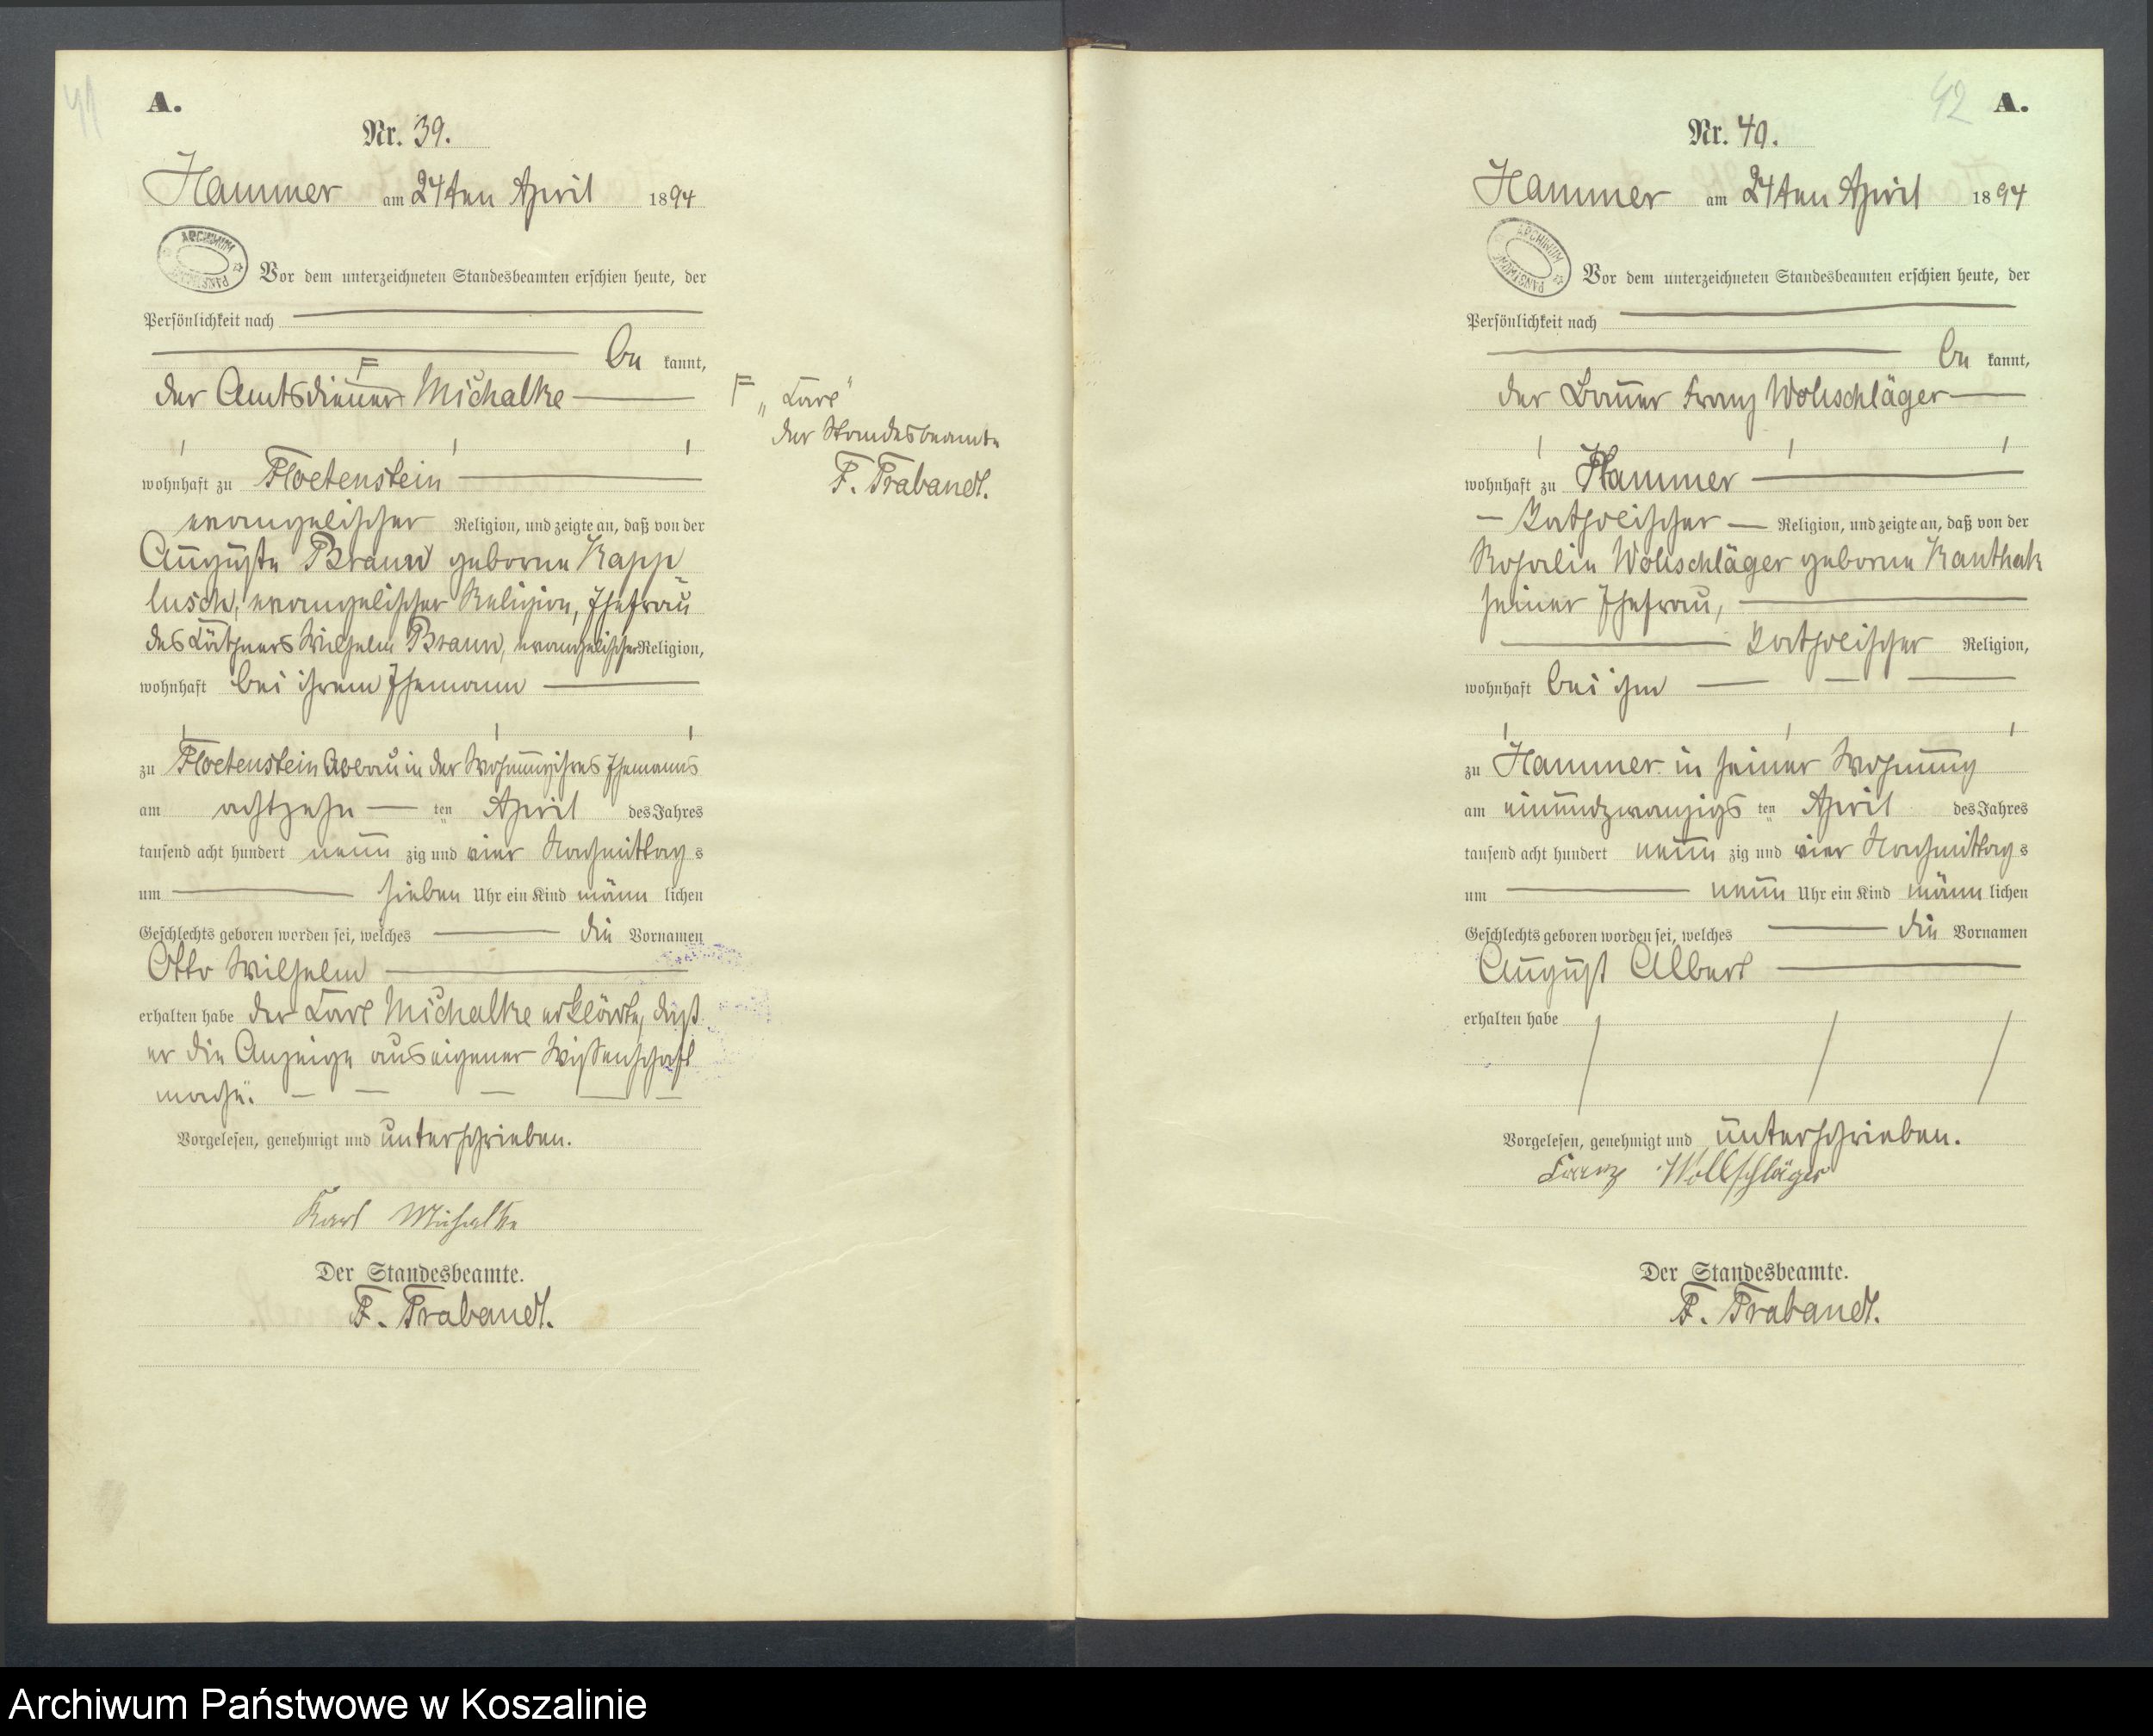 41
A.
Nr. 39.
Hammer am 24ten April 1894
ARCHIWUM PAŃSTWOWE
Vor dem unterzeichneten Standesbeamten erschien heute, der
Persönlichkeit nach
be kannt,
der Amtsdiener F Michalke
wohnhaft zu Floetenstein
evangelischer Religion, und zeigte an, daß von der
Auguste Braun geborne Rapp
lusch, evangelischer Religion, Ehefrau
des Käthners Wilhelm Braun, evangelischer Religion,
wohnhaft bei ihrem Ehemann
zu Floetenstein Abbau in der Wohnung ihres Ehemanns
am achtzehn ten April des Jahres
tausend acht hundert neun zig und vier Nachmittag s
um sieben Uhr ein Kind männ lichen
Geschlechts geboren worden sei, welches die Vornamen
Otto Wilhelm
erhalten habe der Karl Michalke erklärte, daß
er die Anzeige aus eigener Wissenschaft
mache.
Vorgelesen, genehmigt und unterschrieben.
Karl Michalke
Der Standesbeamte.
F. Trabandt.
F „Karl“
der Standesbeamte
F. Trabandt.
42
A.
Nr. 40.
Hammer am 24ten April 1894
ARCHIWUM PAŃSTWOWE
Vor dem unterzeichneten Standesbeamten erschien heute, der
Persönlichkeit nach
be kannt,
der Bauer Franz Wollschläger
wohnhaft zu Hammer
Katholischer Religion, und zeigte an, daß von der
Rosalie Wollschläger geborne Kanthak
seiner Ehefrau,
Katholischer Religion,
wohnhaft bei ihm
zu Hammer in seiner Wohnung
am einundzwanzigs ten April des Jahres
tausend acht hundert neun zig und vier Nachmittag s
um neun Uhr ein Kind männ lichen
Geschlechts geboren worden sei, welches die Vornamen
August Albert
erhalten habe
Vorgelesen, genehmigt und unterschrieben.
Franz Wollschläger
Der Standesbeamte.
F. Trabandt.
Archiwum Państwowe w Koszalinie